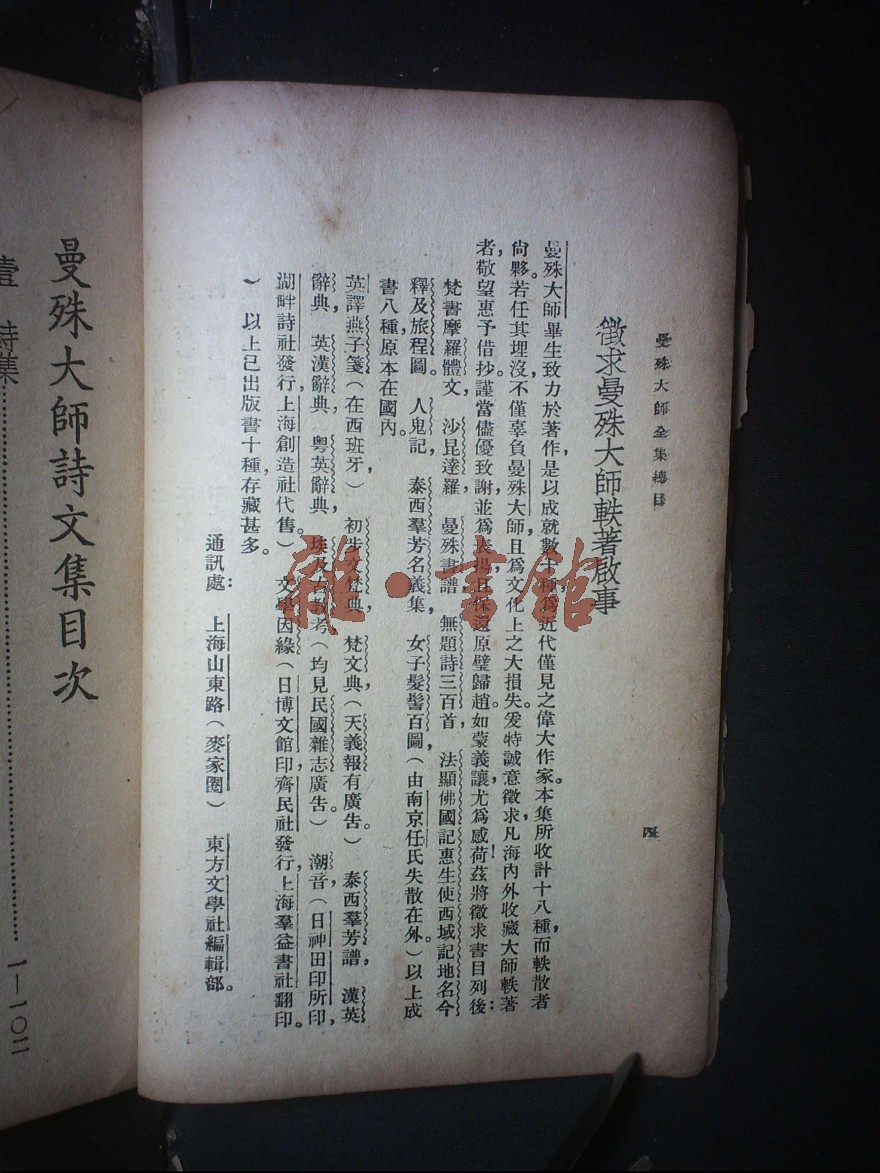 曼殊大師全集總目
四
徵求曼殊大師軼著啟事
曼殊大師畢生致力於著作，是以成就數十種，爲近代僅見之偉大作家。本集所收計十八種，而軼散者
尙夥。若任其埋沒，不僅辜負曼殊大師，且爲文化上之大損失。爰特誠意徵求，凡海內外收藏大師軼著
者，敬望惠予借抄，謹當儘優致謝，並爲表揚，且保還原璧歸趙。如蒙義讓，尤爲感荷！茲將徵求書目列後：
梵書摩羅體文，沙昆達羅，曼殊書譜，無題詩三百首，法顯佛國記惠生使西域記地名今
釋及旅程圖。人鬼記，泰西羣芳名義集，女子髮髻百圖，（由南京任氏失散在外。）以上成
書八種，原本在國內。
英譯燕子箋（在西班牙）初步文梵典，梵文典（天義報有廣告。）泰西羣芳譜，漢英
辭典，英漢辭典，粵英辭典，埃及古教考（均見民國雜志廣告。）潮音（日神田印所印，
湖畔詩社發行，上海創造社代售。）文學因緣（日博文館印，齊民社發行，上海羣益書社翻印。
）以上已出版書十種，存藏甚多。
通訊處：上海山東路（麥家圈）東方文學社編輯部。
曼殊大師詩文集目次
壹 詩集……………………一—一〇二
雜·書館